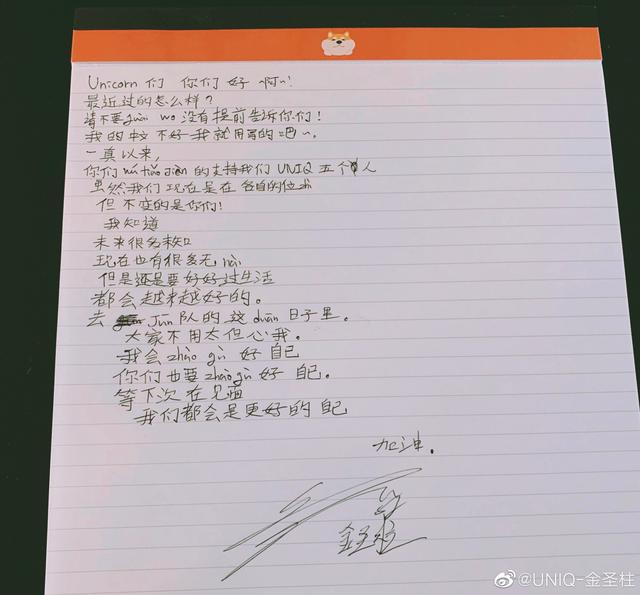 Unicorn 们 你们 好 啊~!
最近过的怎么样？
请不要guài wo 没有提前告诉你们!
我的中文不好我就用写的吧~.
一真以来,
你们 的支持我们 UNIQ 五个人
虽然我们现在是在 各自的位
但 不变的是你们!
我知道
未来很多未知
现在也有很多无nài
但是还是要好好过生活
都会越来越好的。
去 Jūn 队的 这 duān 日子里。
大家不用太但心我。
我会 zhào gù 好 自己
你们也要 zhào gù 好 自己.
等下次 在 见面
我们都会是更好的 自己
加油.
金圣柱
@UNIQ-金圣柱